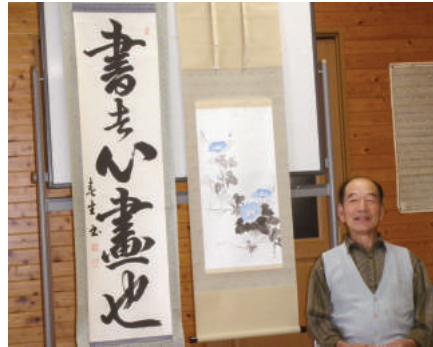 書者心畫也